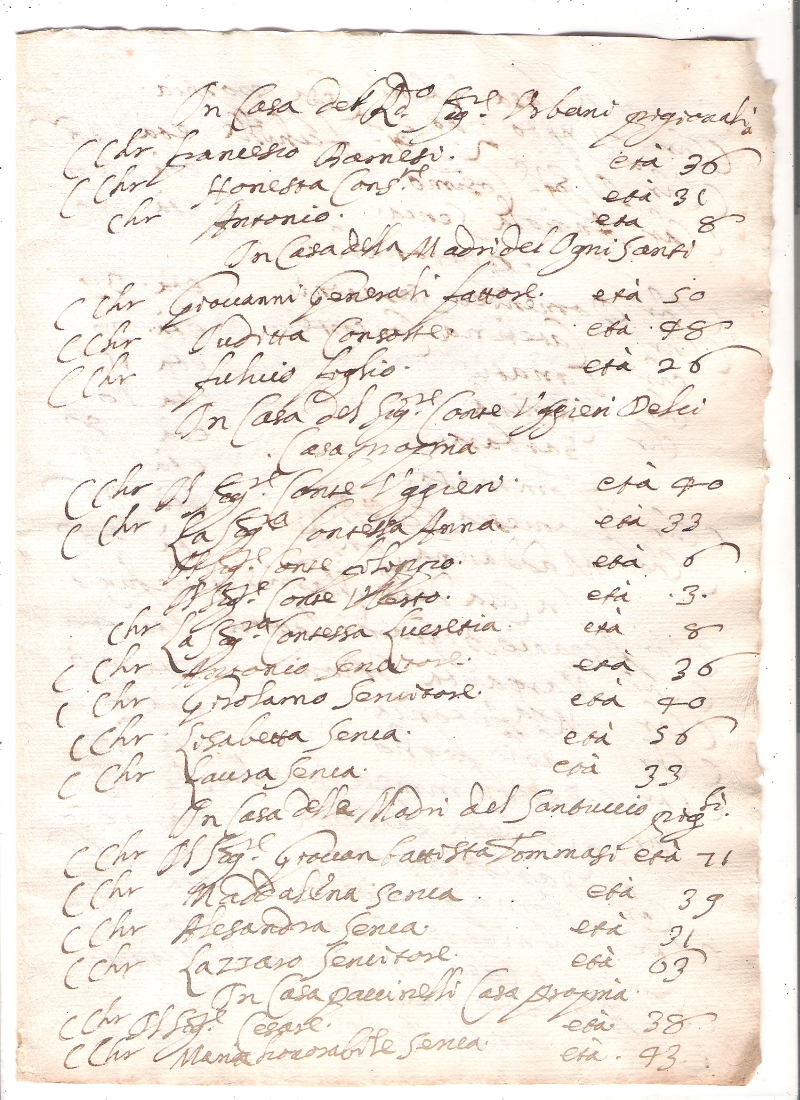 In Casa del Rdo Sigre Urbani pigionali
C Chr Francesco Barnesi. età 36
C Chr Honesta Consrte età 31
Chr Antonio. eta 8
In Casa della Madri del Ogni Santi
C Chr Giovanni Generali fattore. età 50
C Chr Iuditta Consorte. età 48
C Chr fulvio figlio. età 26
In Casa del Sigre Conte Uggieri Delci
Casa propria
C Chr Il Sigre Conte Uggieri. età 40
C Chr La Sigra Contessa Anna. età 33
Il Sigre Conte età 6
Il Sigre Conte Uberto. età .3.
Chr La Sigra Contessa Lucretia. età 8
C Chr Antonio Servitore. età 36
C Chr Girolamo Servitore. età 40
C Chr Lisabetta Serva. età 56
C Chr Laura Serva. età 33
In Casa delle Madri del Santuccio pigli.
C Chr Il Sigre Giovan battista Tommasi età 71
C Chr Maddalena serva età 39
C Chr Alesandra Serva. età 31
C Chr Lazzaro Servitore. età 63
In Casa paccinelli Casa propria.
C Chr Il Sigre Cesare. età 38
C Chr Maria honorabile Serva. età. 43